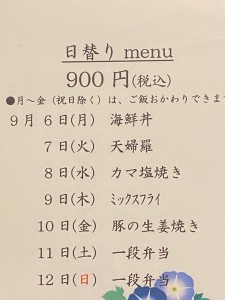 日替り menu
900 円(税込)
●月～金（祝日除く）は、ご飯おかわりできま
9月 6日(月) 海鮮丼
7日(火) 天婦羅
8日(水) カマ塩焼き
9日(木) ミックスフライ
10日(金) 豚の生姜焼き
11日(土) 一段弁当
12日(日) 一段弁当